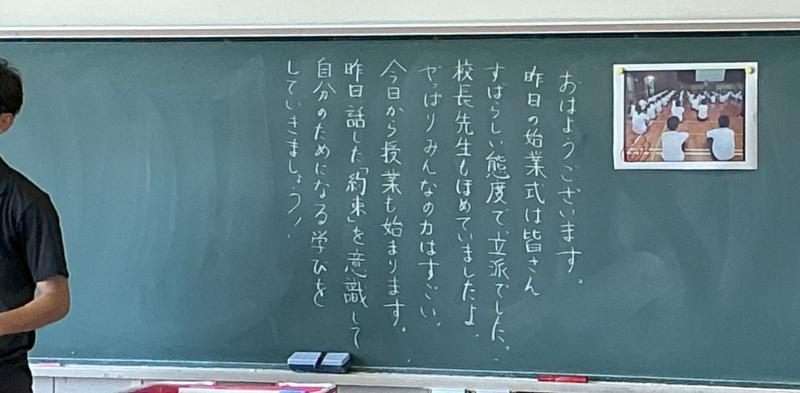 おはようございます。
昨日の始業式は皆さん
すばらしい態度で、立派でした。
校長先生もほめていましたよ。
やっぱりみんなの力はすごい。
今日から授業も始まります。
昨日話した「約束」を意識して
自分のためになる学びを
していきましょう！